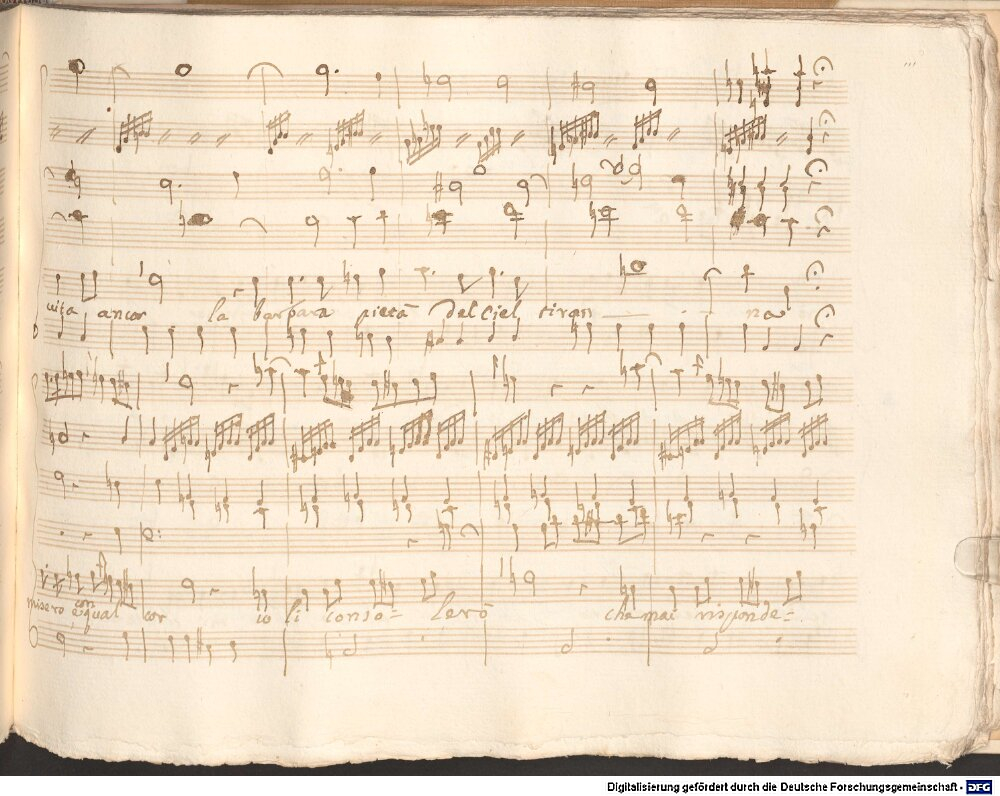 vita ancor la barbara pietà del ciel tiran — na
con
misero e qual cor io li conso= lerò che mai risponde=
Digitalisierung gefördert durch die Deutsche Forschungsgemeinschaft - DFG